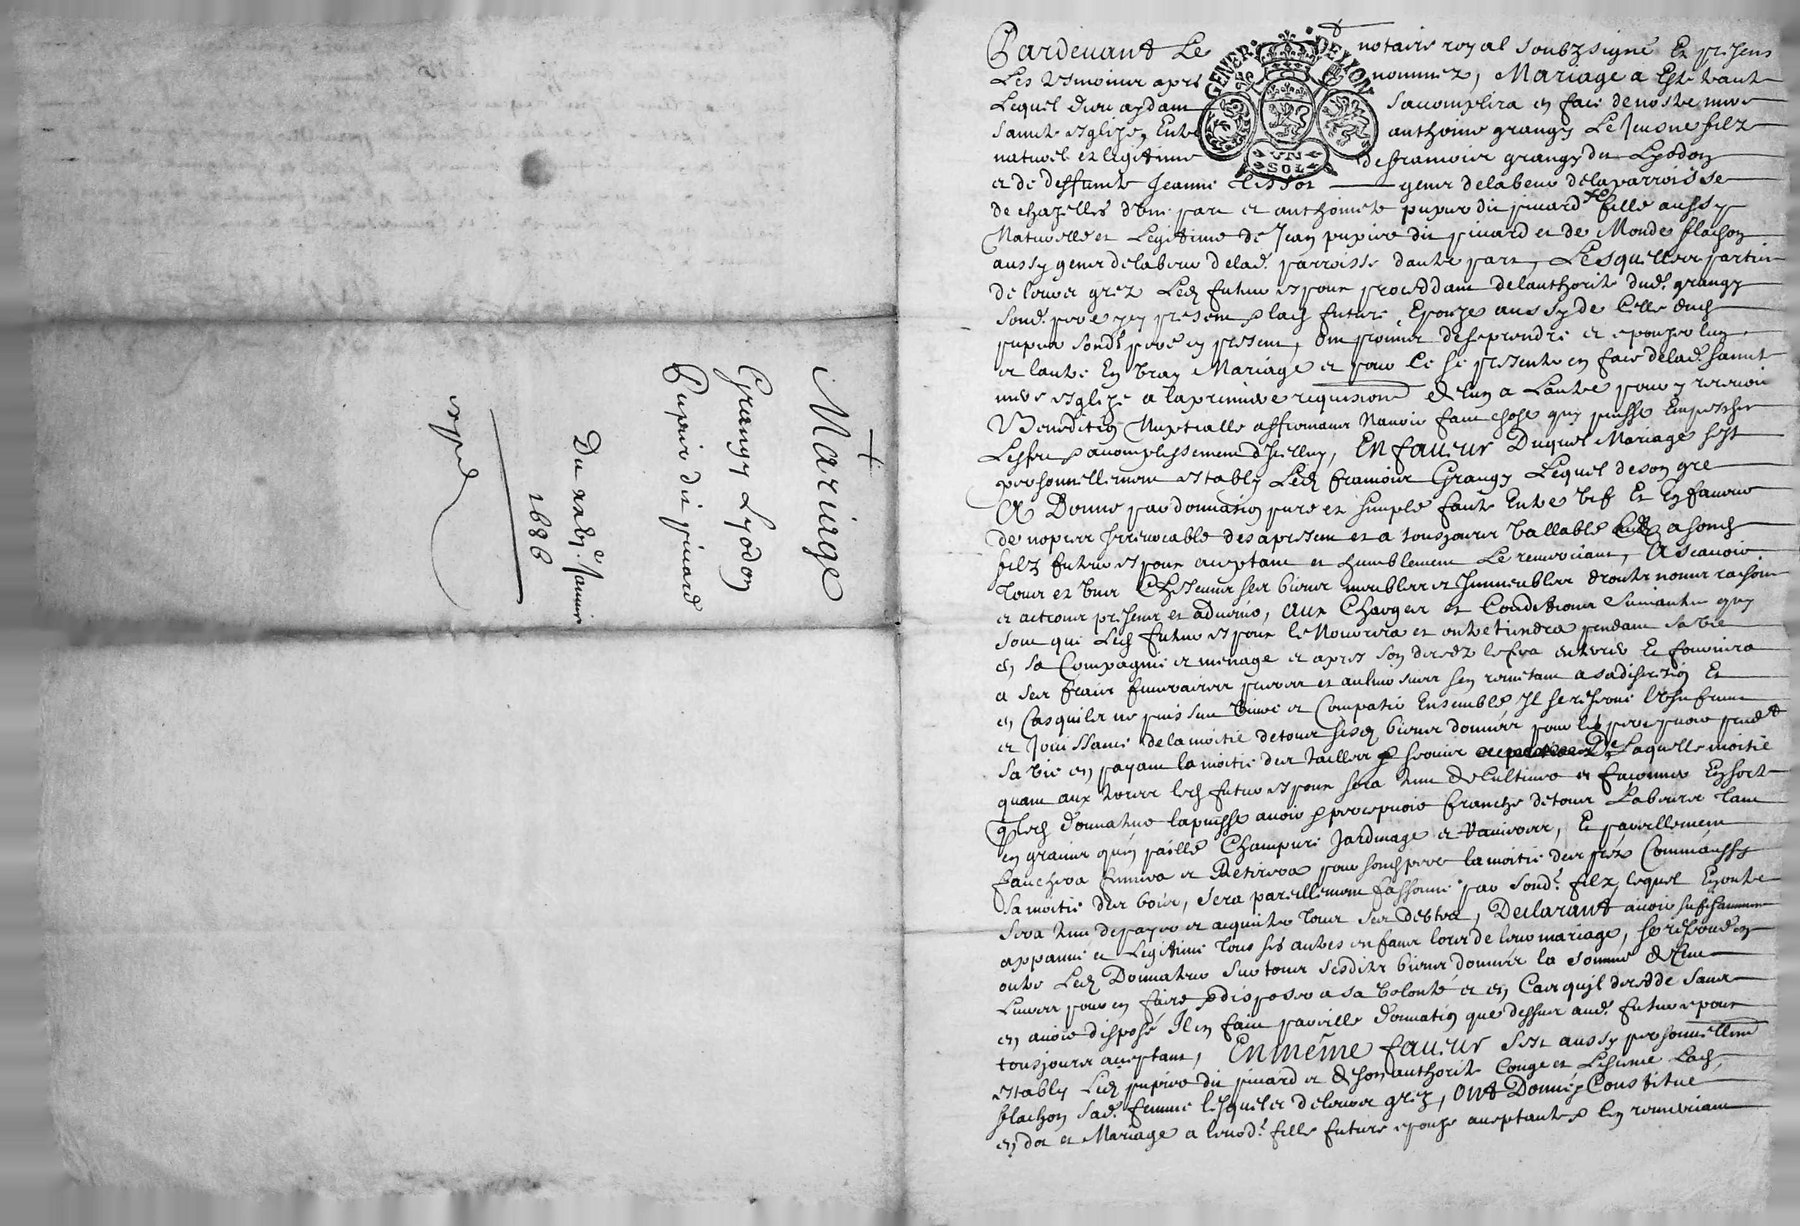 Mariage
Grangy Lyodon
Pupier dit pinard
Du xxbj.e Janvier
1686
expd
GENER. DE LYON
UN
SOL
Pardevant Le notaire royal soubzsigné Et presens
Les tesmoins apres nommez, Mariage a Esté traité
Lequel dieu aydant s'acomplira en face de nostre mere
sainte esglize, Entre anthoine grangy Le Jeusne filz
naturel et legitime de francois grangy du Lyodon
et de deffunte Jeanne gens de labeur de la parroisse
de chazelles d'une part et anthoinete pupier dit pinard fille aussy
Naturelle et Legitime de Jean pupier dit pinard et de Monde flachon
aussy gens de labeur de lad. parroisse d'autre part, Lesquelles parties
de leurs grez Led. futur espoux proceddant de l'authorité dud. grangy
sond. pere cy present & lad. future Epouze aussy de celle dud.
pupier sond. pere cy present, ont promis de se prendre et epouzer l'un
et l'autre En vray Mariage et pour ce se presenter en face de lad. sainte
mere esglize a la premiere requisition de l'un a L'autre pour y recevoir
Benediction Nuptialle affirmant N'avoir fait chose quy puisse Empescher
L'effet & acomplissement d'Icelluy, EN faveur Duquel Mariage s'est
personnellement estably Led. francois Grangy Lequel de son gre
A Donné par donnation pure et simple faite Entre vifs Et En faveur
de nopces Irrevocable des a present et a tousjours vallable a sond.
filz futur espoux aceptant et humblement Le remerciant, A scavoir
Tous et uns Chescuns ses biens meubles et Immeubles droits noms raisons
et actions presens et advenir, Aux Charges et Conditions suivantes quy
sont que Led. futur espoux le Nourrira et entretiendra pendant sa vie
en sa Compagnie et menage et apres son deceds le fera enterrer Et fournira
a ses fraix funeraires pieux et aulmosnes s'en remetant a sa discretion Et
en Cas qu'ils ne puissent vivre et Compatir Ensemble Il se reserve l'usufruit
et Jouissance de la moitié de tous sesd. biens donnés pour les percepvoir pendt
sa vie en payant la moitié des tailles & De Laquelle moitié
quant aux terres led. futur espoux sera tenu de Cultiver et faconner En sorte
q. led. donnateur la puisse avoir & percepvoir franche de tous Labeurs tant
en grains qu'en paille Champure Jardinage et, Et pareillement
fauchera fennera et Retirera pour sond. pere la moitié des prez Comm'aussy
sa moitié des bois, sera pareillement fassonné par sond. filz, lequel En outre
sera tenu de payer et acquiter tous ses debtes, Declarant avoir suffisamment
appanné et Legitimé tous ses autres enfans lors de leur mariage, se reservé en
outre Led. Donnateur sur tous sesdits biens donnés la somme de
Livres pour en faire & disposer a sa volonté et en Cas qu'il decedde sans
en avoir disposé Il en fait pareille donnation que dessus aud. futur epoux
tousjours aceptant, EN même faveur s'est aussy personnellemt
estably Led. pupier dit pinard et de son authorité Congé et Licence Lad.
flachon sad. femme lesquels de leurs grez, ont Donné & Constitué
en dot et Mariage a leurd. fille future epouze aceptante & les remerciant